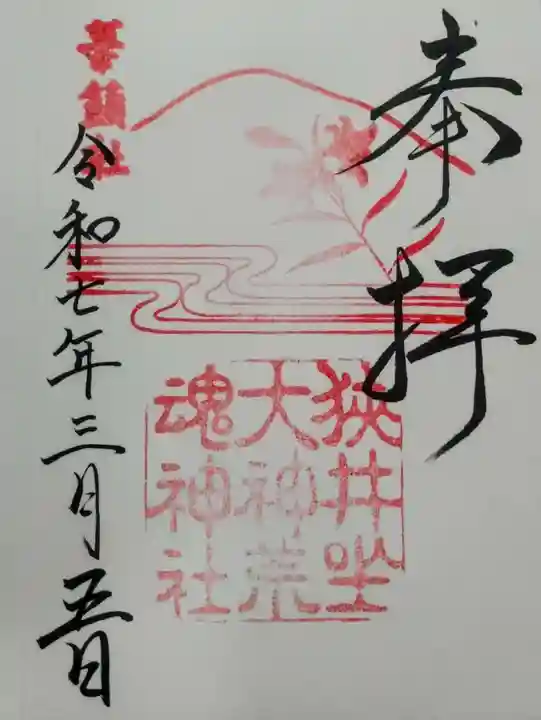 奉拝
狭井坐
大神荒
魂神社
令和七年三月五日